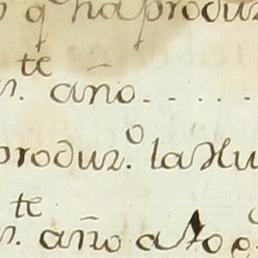 q ha produz
te
año. . . . . .
produz.º la Hu
te
año a